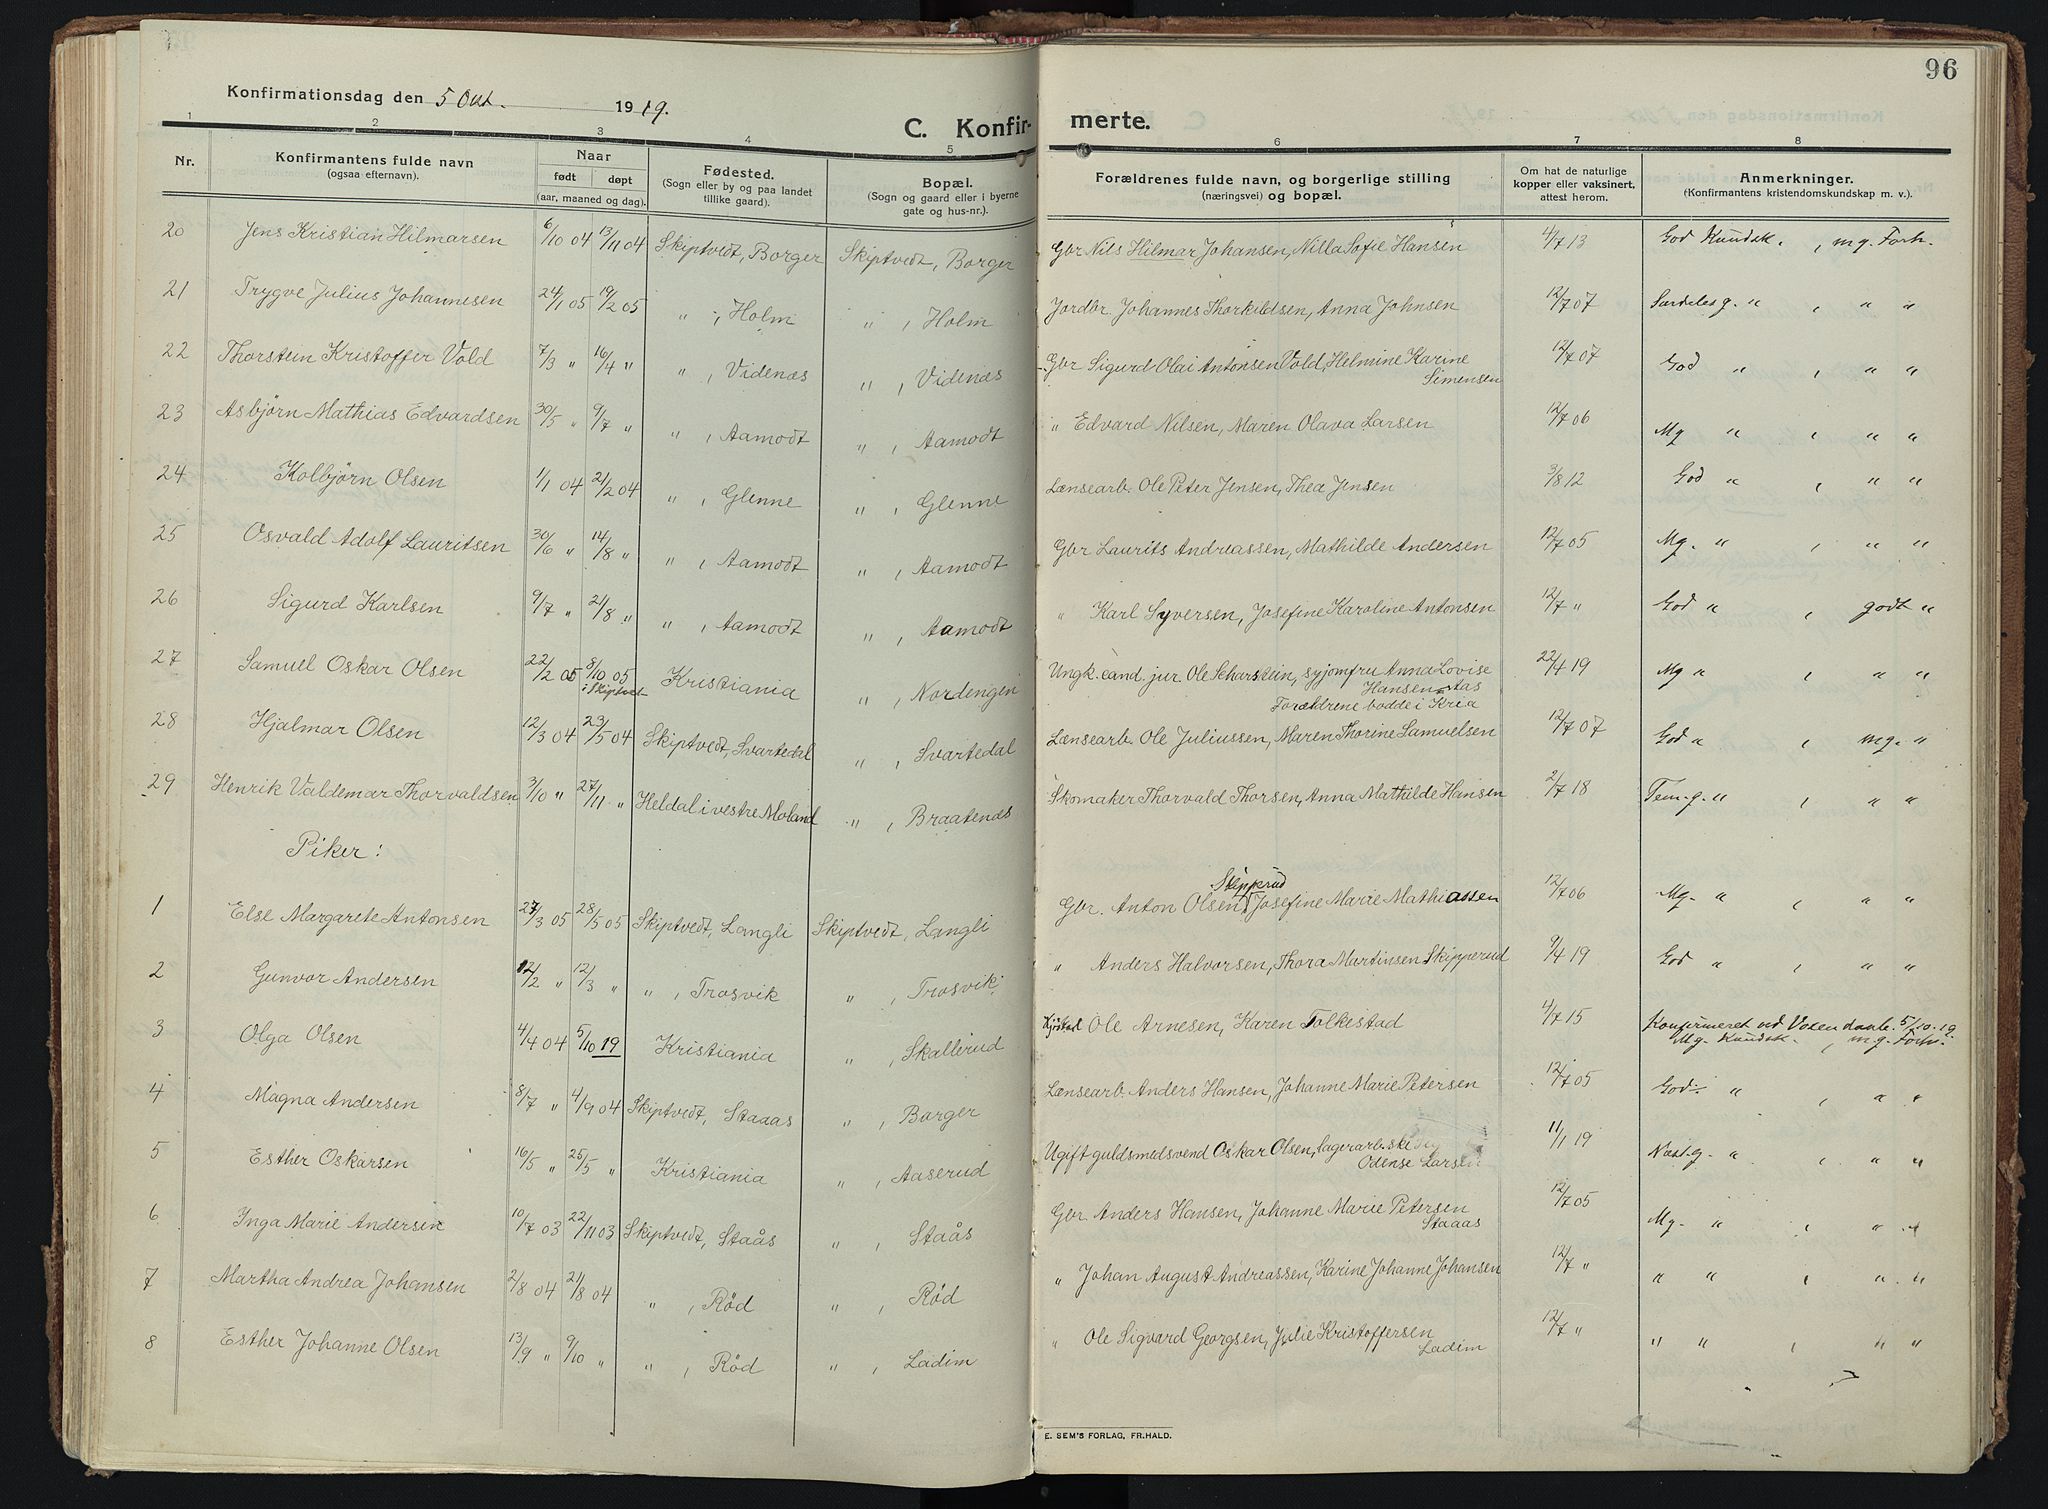 96
Konfirmationsdag den 5 Okt. 1919.
C. Konfirmerte.
1 2 3 4 5 6 7 8
Nr.
Konfirmantens fulde navn
(ogsaa efternavn).
Naar
født døpt
(aar, maaned og dag).
Fødested.
(Sogn eller by og paa landet
tillike gaard).
Bopæl.
(Sogn og gaard eller i byerne
gate og hus-nr.).
Forældrenes fulde navn, og borgerlige stilling
(næringsvei) og bopæl.
Om hat de naturlige
kopper eller vaksinert,
attest herom.
Anmerkninger.
(Konfirmantens kristendomskundskap m. v.).
20 Jens Kristian Hilmarsen 6/10 04 13/11 04 Skiptvedt, Borger Skiptvedt, Borger Gbr Nils Hilmar Johansen, Nilla Sofie Hansen 4/7 13 God Kundsk. , m g. Forh.
21 Trygve Julius Johannesen 24/1 05 19/2 05 " , Holm " , Holm Jordbr. Johannes Thorkildsen, Anna Johnsen 12/7 07 Særdeles g. " , " "
22 Thorstein Kristoffer Vold 7/3 " 16/4 " " , Videnæs " , Videnæs Gbr Sigurd Olai Antonsen Vold, Helmine Karine
Simensen 12/7 07 God " , " "
23 Asbjørn Mathias Edvardsen 30/5 " 9/7 " " , Aamodt " , Aamodt " Edvard Nilsen, Maren Olava Larsen 12/7 06 Mg " , " "
24 Kolbjørn Olsen 1/1 04 21/2 04 " , Glenne " , Glenne Lænsearb. Ole Peter Jensen, Thea Jensen 3/8 12 God " , " "
25 Osvald Adolf Lauritsen 30/6 " 14/8 " " , Aamodt " , Aamodt Gbr Laurits Andreassen, Mathilde Andersen 12/7 05 Mg. " , " "
26 Sigurd Karlsen 9/7 " 21/8 " " , Aamodt " , Aamodt " Karl Syversen, Josefine Karoline Antonsen 12/7 " God " , godt "
27 Samuel Oskar Olsen 22/2 05 8/10 05
i Skiptvet Kristiania " , Nordengen Ungk. cand. jur. Ole Scharstein, syjomfru Anna Lovise
Hansen
Forældrene bodde i Kr&a 22/4 19 Mg " , " "
28 Hjalmar Olsen 12/3 04 23/5 04 Skiptvedt, Svartedal " , Svartedal Lænsearb. Ole Juliussen, Maren Thorine Samuelsen 12/7 07 God " , mg. "
29 Henrik Valdemar Thorvaldsen 3/10 " 27/11 " Heldal i vestre Moland " , Braatenæs Skomaker Thorvald Thorsen, Anna Mathilde Hansen 2/7 18 Tem. g. " , " "
Piker:
1 Else Margarete Antonsen 27/3 05 28/5 05 Skiptvedt, Langli Skiptvedt, Langli Gbr. Anton Olsen Skipperud Josefine Marie Mathiassen 12/7 06 Mg. " , " "
2 Gunvor Andersen 12/2 " 12/3 " " , Trosvik " , Trosvik " Anders Halvorsen, Thora Martinsen Skipperud 9/4 19 God " , " "
3 Olga Olsen 4/4 04 5/10 19 Kristiania " , Skallerud Ole Arnesen, Karen Folkestad 4/7 15 Konfirmeret ved Voxendaab. 5/10. 19
Mg. Kundsk. , m.g. Forh.
4 Magna Andersen 8/7 " 4/9 04 Skiptvedt, Staaas " , Borger Lænsearb. Anders Hansen, Johanne Marie Petersen 12/7 05 God. " , " "
5 Esther Oskarsen 16/5 " 25/5 " Kristiania " , Aaserud Ugift guldsmedsvend Oskar Olsen, lagerarbeske
Odense Larsen 11/1 19 Næst. g. " , " "
6 Inga Marie Andersen 10/7 03 22/11 03 Skiptvedt, Staås " , Staås Gbr. Anders Hansen, Johanne Marie Petersen
Staaas 12/7 05 Mg. " , " "
7 Martha Andrea Johansen 2/8 04 21/8 04 " , Rød " , Rød " Johan August Andreassen, Karine Johanne Johansen 12/7 " " " , " "
8 Esther Johanne Olsen 13/9 " 9/10 " " , Rød " , Ladim " Ole Sigvard Georgsen, Julie Kristoffersen
Ladim 12/7 " " " , " "
E. SEM'S FORLAG, FR.HALD.